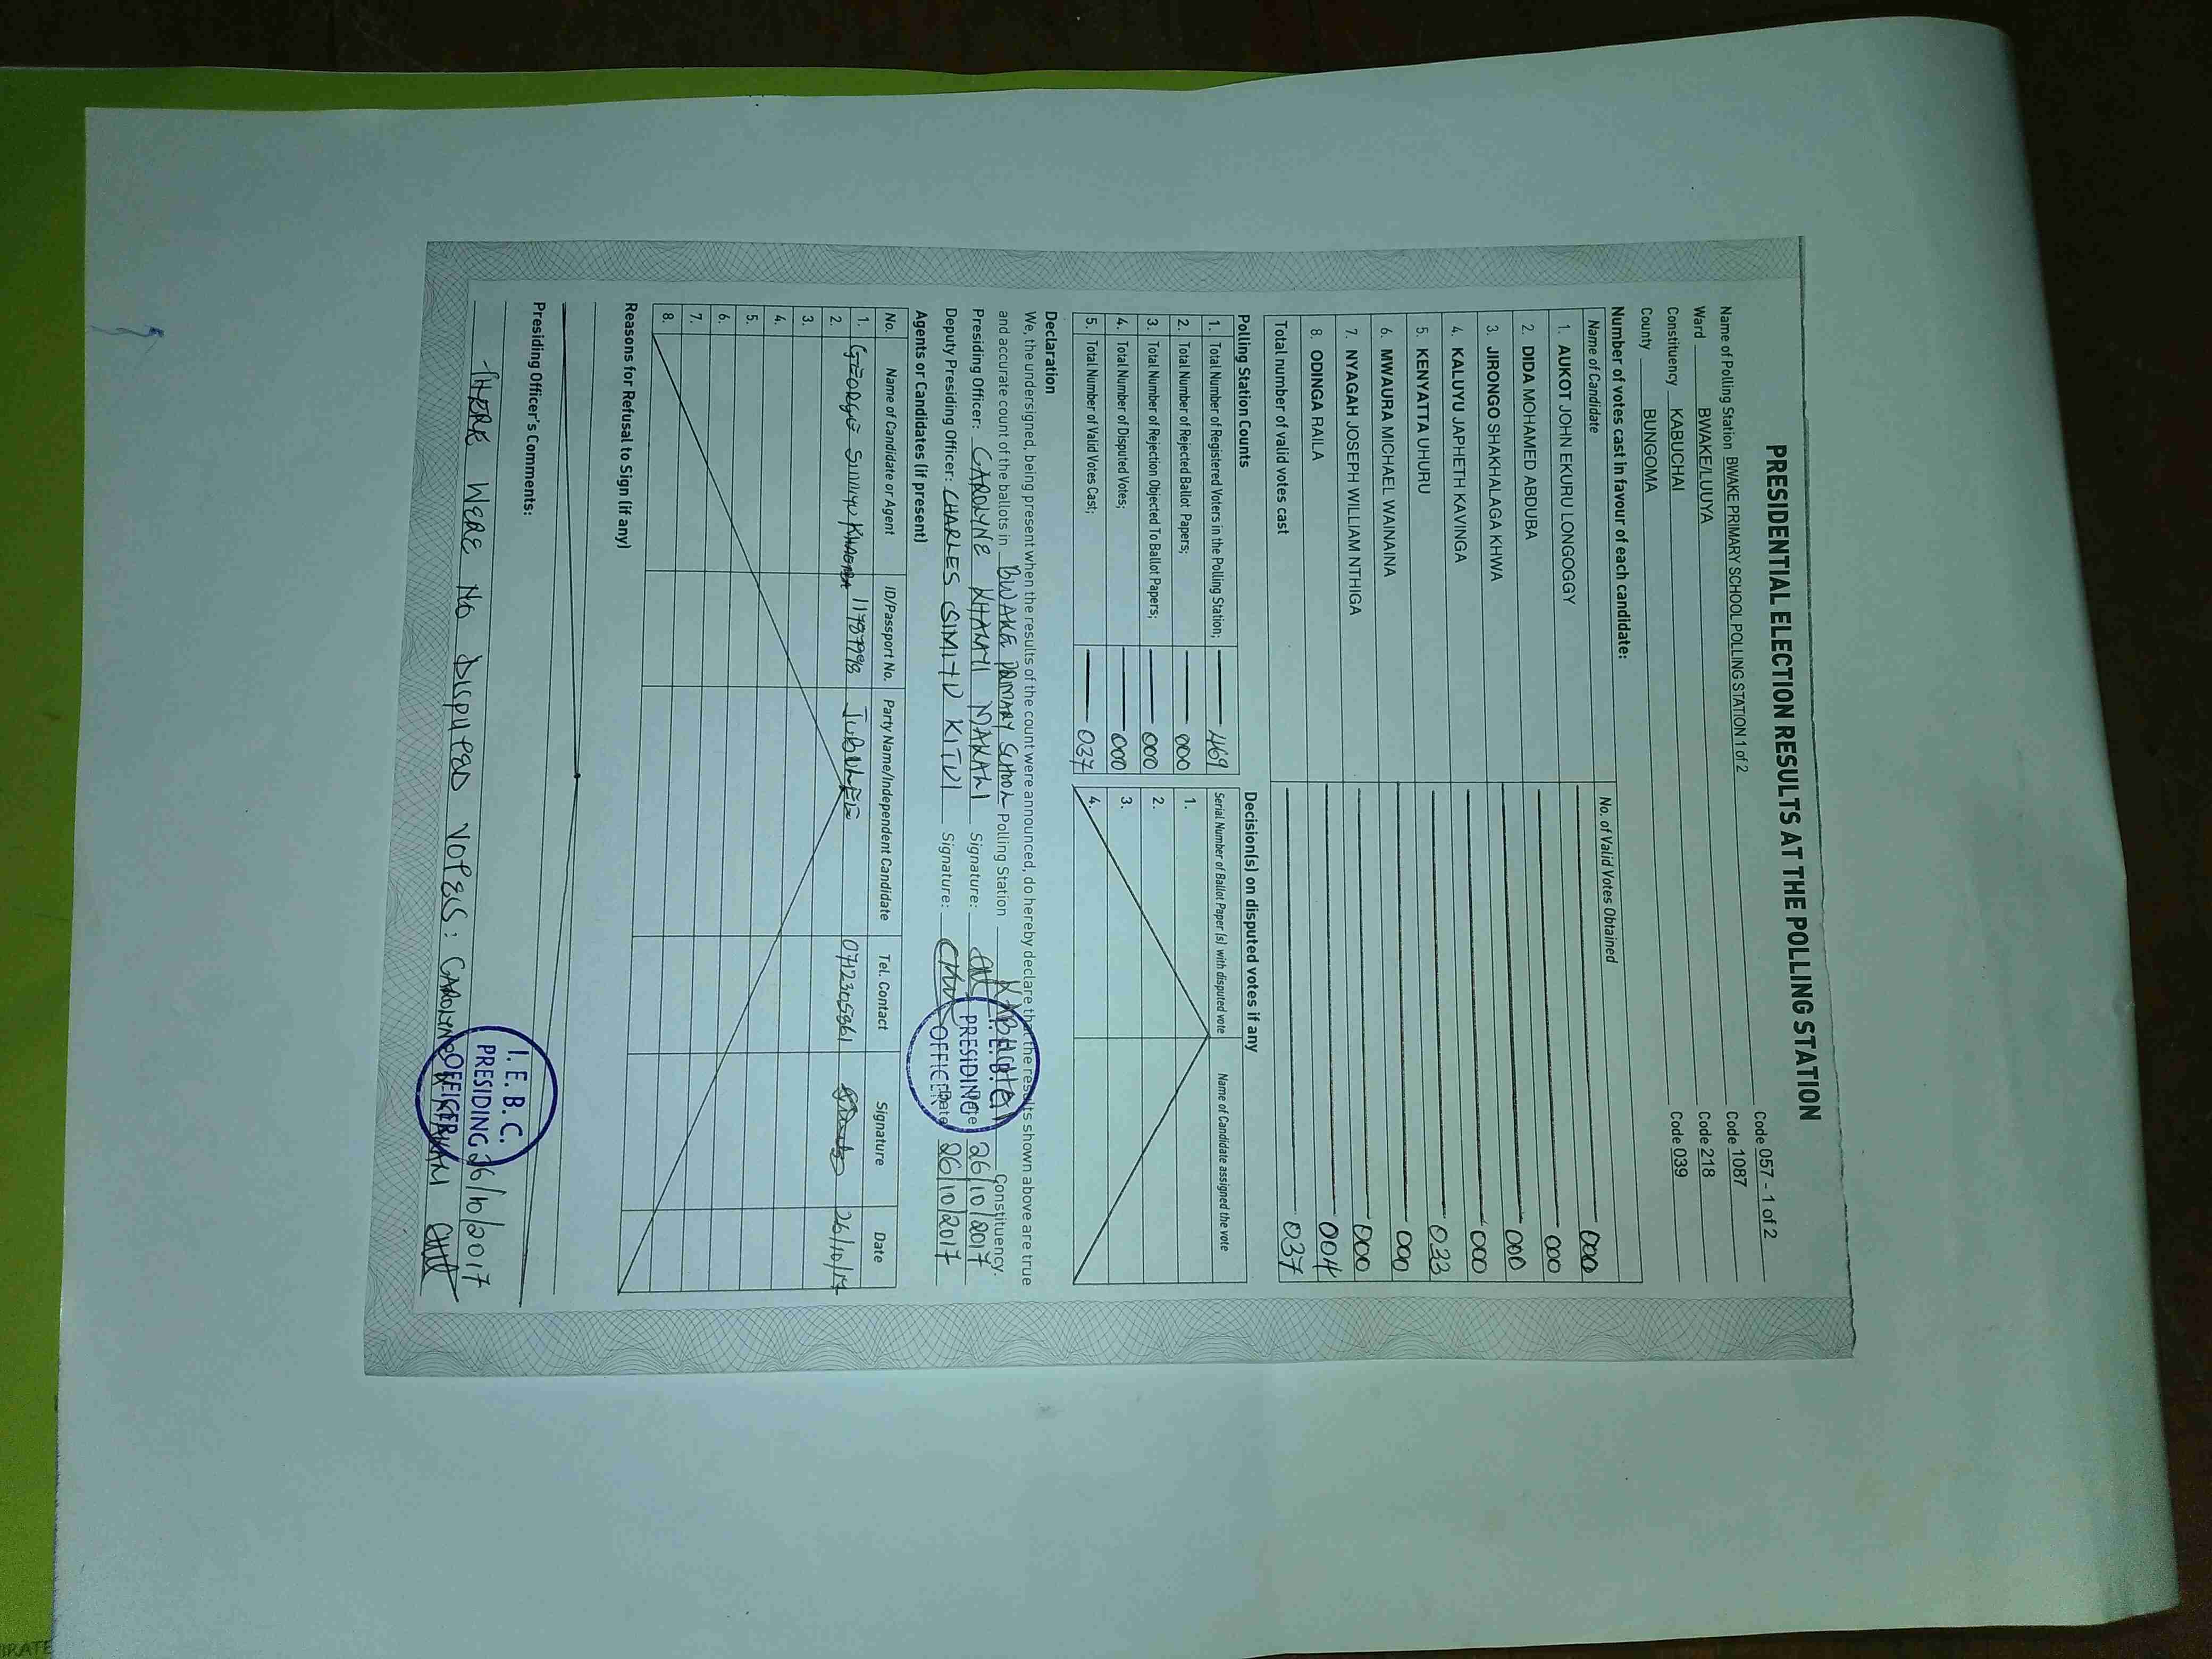 PRESIDENTIAL ELECTION RESULTS AT THE POLLING STATION
Name of Polling Station BWAKE PRIMARY SCHOOL POLLING STATION 1 of 2 Code 057 - 1 of 2
Ward BWAKE/LUUYA Code 1087
Constituency KABUCHAI Code 218
County BUNGOMA Code 039
Number of votes cast in favour of each candidate:
Name of Candidate No. of Valid Votes Obtained
1. AUKOT JOHN EKURU LONGOGGY 000
2. DIDA MOHAMED ABDUBA 000
3. JIRONGO SHAKHALAGA KHWA 000
4. KALUYU JAPHETH KAVINGA 000
5. KENYATTA UHURU 033
6. MWAURA MICHAEL WAINAINA 000
7. NYAGAH JOSEPH WILLIAM NTHIGA 000
8. ODINGA RAILA 004
Total number of valid votes cast 037
Polling Station Counts
1. Total Number of Registered Voters in the Polling Station; 469
2. Total Number of Rejected Ballot Papers; 000
3. Total Number of Rejection Objected To Ballot Papers; 000
4. Total Number of Disputed Votes; 000
5. Total Number of Valid Votes Cast; 037
Decision(s) on disputed votes if any
Serial Number of Ballot Paper (s) with disputed vote Name of Candidate assigned the vote
1.
2.
3.
4.
Declaration
We, the undersigned, being present when the results of the count were announced, do hereby declare that the results shown above are true
and accurate count of the ballots in BWAKE PRIMARY SCHOOL Polling Station KABUCHAI Constituency.
Presiding Officer: CAROLYNE KHANYI Signature: Date 26/10/2017
Deputy Presiding Officer: CHARLES SIMIYU KITUI Signature: Date 26/10/2017
I.E.B.C.
PRESIDING
OFFICER
Agents or Candidates (if present)
No. Name of Candidate or Agent ID/Passport No. Party Name/Independent Candidate Tel. Contact Signature Date
1. GEORGE SIMIYU 11787998 JUBILEE 0712305361 26/10/17
2.
3.
4.
5.
6.
7.
8.
Reasons for Refusal to Sign (if any)
Presiding Officer's Comments:
THERE WERE NO DISPUTED VOTES: CAROLYNE 26/10/2017
I. E. B. C.
PRESIDING
OFFICER